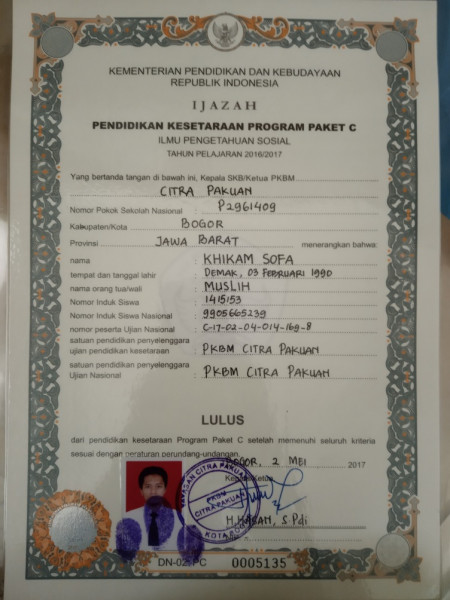 KEMENTERIAN PENDIDIKAN DAN KEBUDAYAAN
REPUBLIK INDONESIA
IJAZAH
PENDIDIKAN KESETARAAN PROGRAM PAKET C
ILMU PENGETAHUAN SOSIAL
TAHUN PELAJARAN 2016/2017
Yang bertanda tangan di bawah ini, Kepala SKB/Ketua PKBM
CITRA PAKUAN
Nomor Pokok Sekolah Nasional : P2961409
Kabupaten/Kota : BOGOR
Provinsi JAWA BARAT menerangkan bahwa:
nama : KHIKAM SOFA
tempat dan tanggal lahir : DEMAK, 03 FEBRUARI 1990
nama orang tua/wali : MUSLIH
Nomor Induk Siswa : 1415153
Nomor Induk Siswa Nasional : 9905665239
nomor peserta Ujian Nasional : C-17-02-04-014-169-8
satuan pendidikan penyelenggara
ujian pendidikan kesetaraan : PKBM CITRA PAKUAN
satuan pendidikan penyelenggara
Ujian Nasional : PKBM CITRA PAKUAN
LULUS
dari pendidikan kesetaraan Program Paket C setelah memenuhi seluruh kriteria
sesuai dengan peraturan perundang-undangan.
BOGOR, 2 MEI 2017
Ketua
YAYASAN CITRA PAKUAN
PKBM
CITRA PAKUAN
KOTA
H. HASAN, S.Pdi
DN-02 PC 0005135